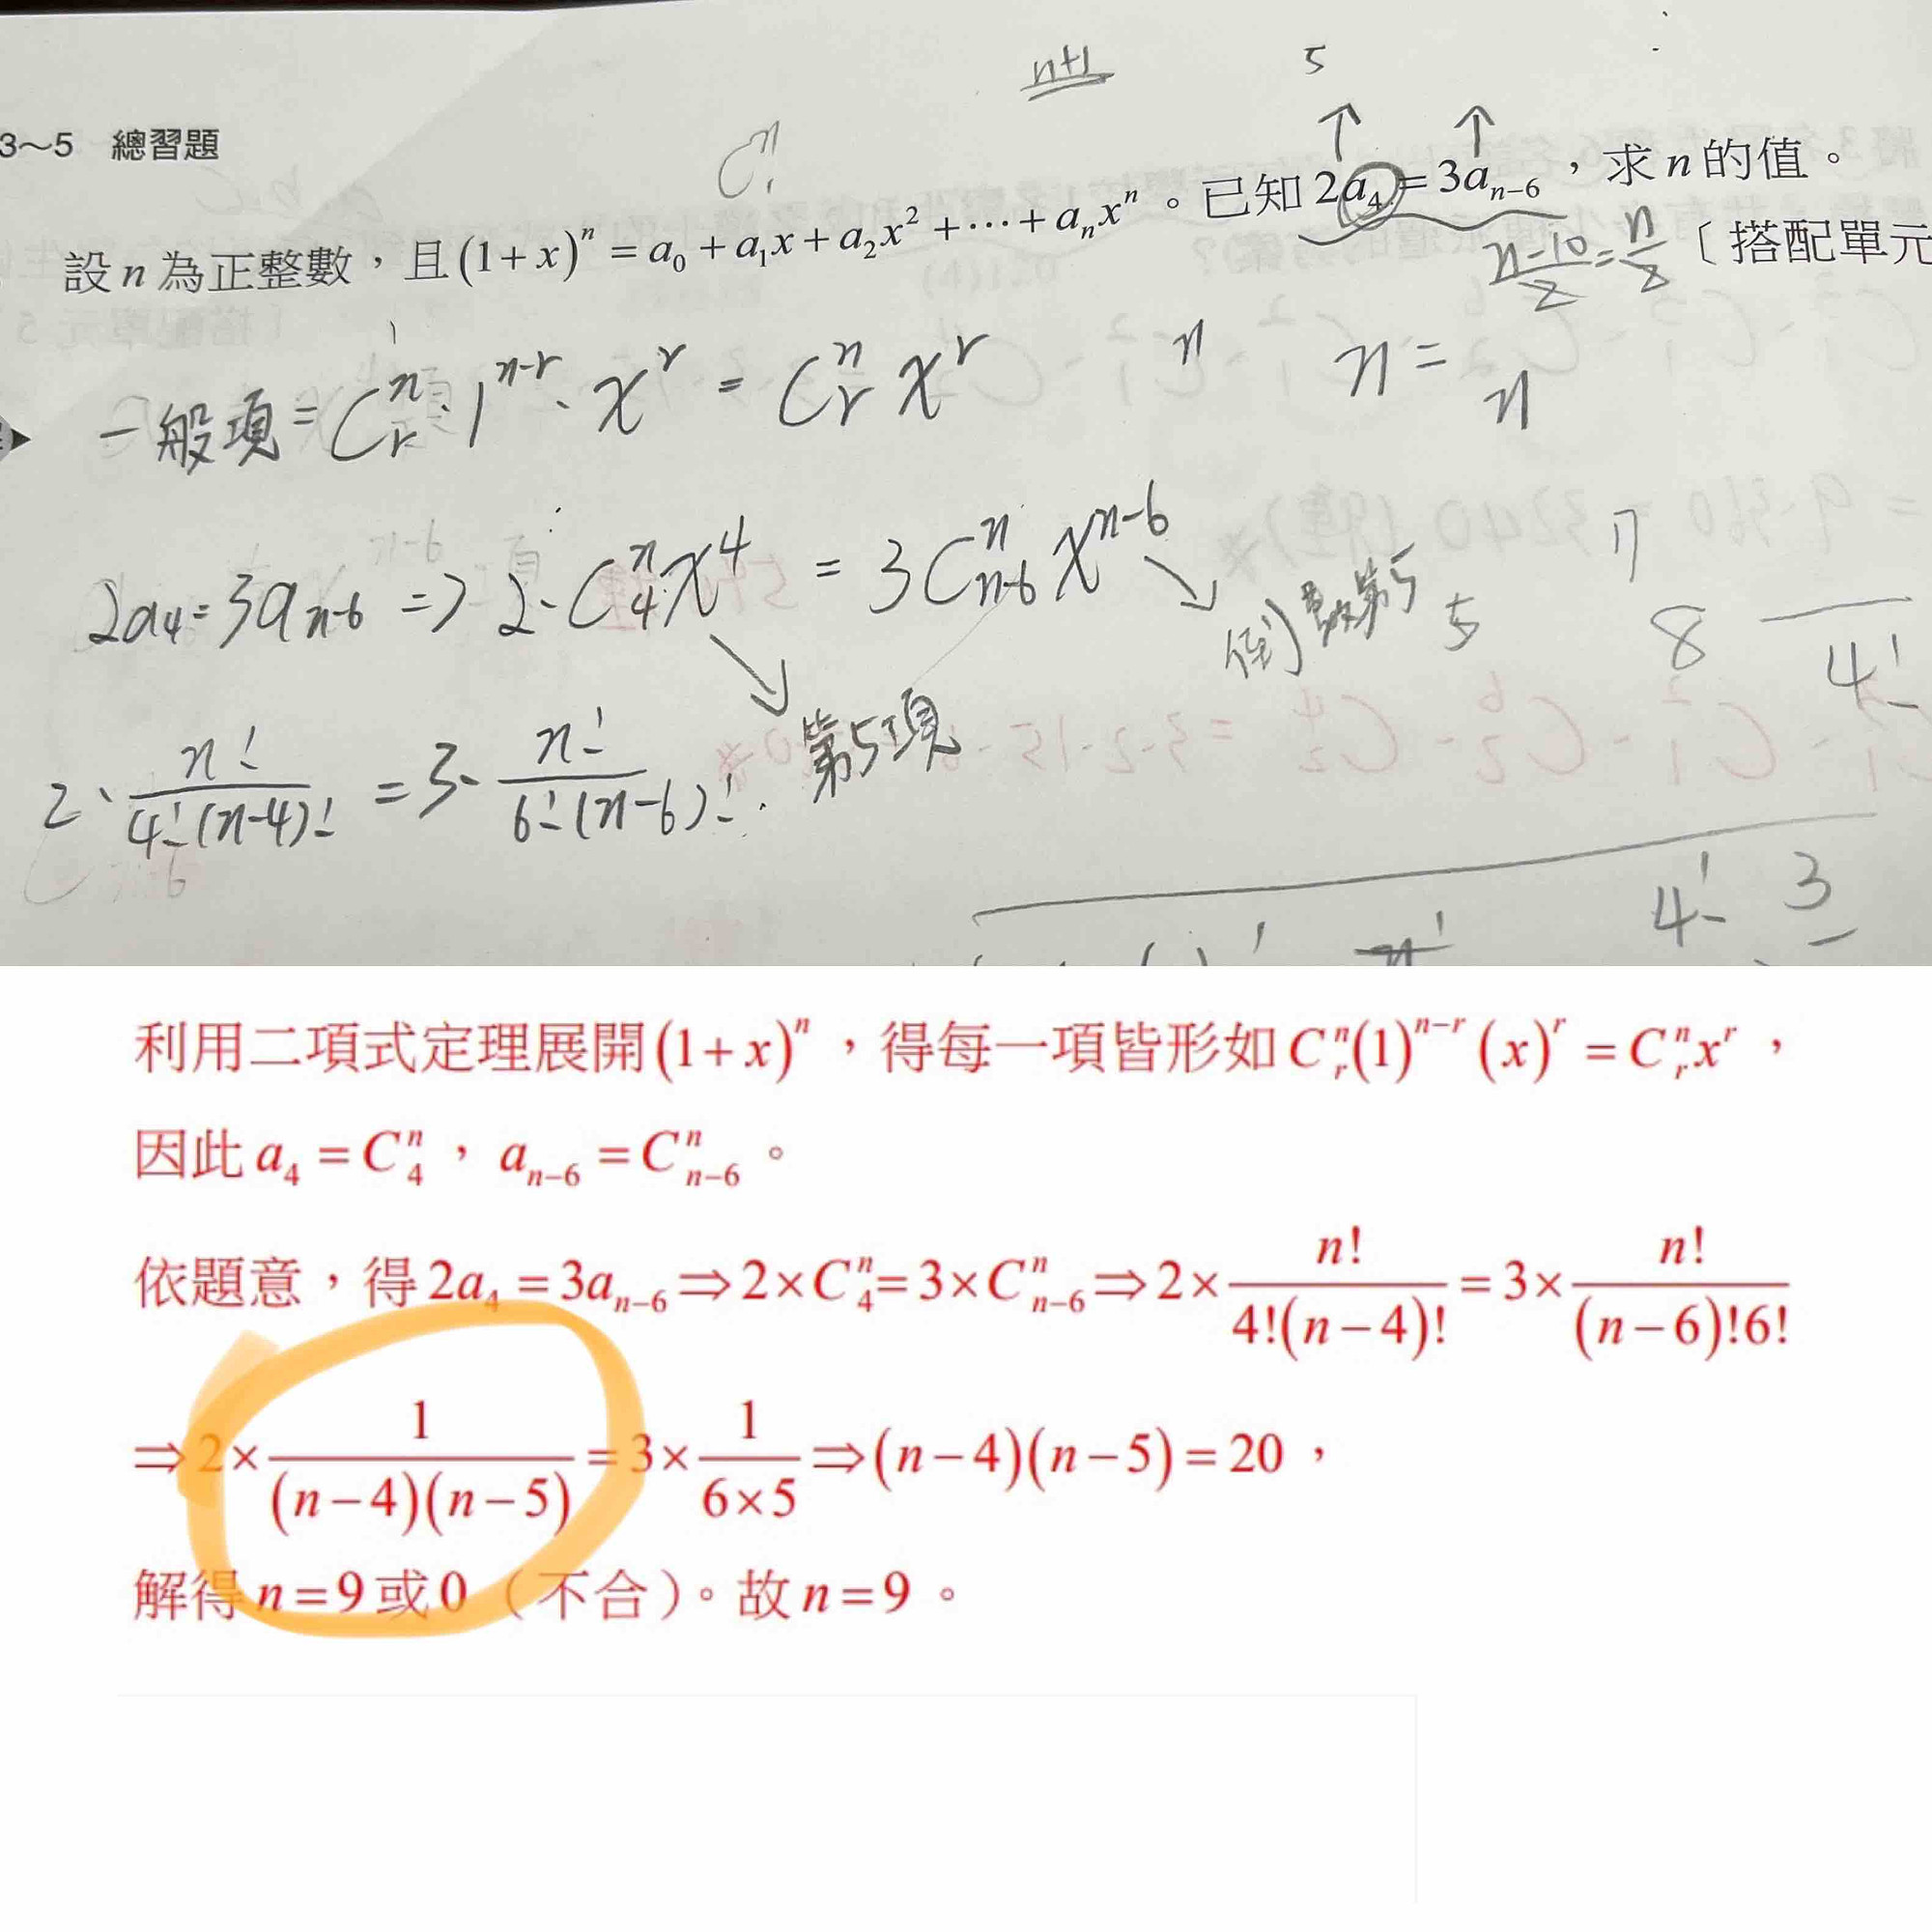 n+1
5
3～5 總習題
設 n 為正整數，且 (1+x)^n = a_0 + a_1x + a_2x^2 + ⋯ + a_nx^n 。已知 2a_4 = 3a_{n-6}，求 n 的值。
〔搭配單元
n-10/2 = n/2
一般項 = C^n_r · 1^{n-r} · x^r = C^n_r x^r
n
n =
n
2a_4 = 3a_{n-6} => 2 · C^n_4 x^4 = 3C^n_{n-6} x^{n-6}
倒數第5
5
8
4!
第5項
2 · n!/4!(n-4)! = 3 · n!/6!(n-6)!
4! 3
利用二項式定理展開 (1+x)^n，得每一項皆形如 C^n_r(1)^{n-r}(x)^r = C^n_r x^r，
因此 a_4 = C^n_4，a_{n-6} = C^n_{n-6}。
依題意，得 2a_4 = 3a_{n-6} ⇒ 2×C^n_4 = 3×C^n_{n-6} ⇒ 2× n!/4!(n-4)! = 3× n!/(n-6)!6!
⇒ 2× 1/(n-4)(n-5) = 3× 1/6×5 ⇒ (n-4)(n-5) = 20，
解得 n=9 或 0（不合）。故 n=9。